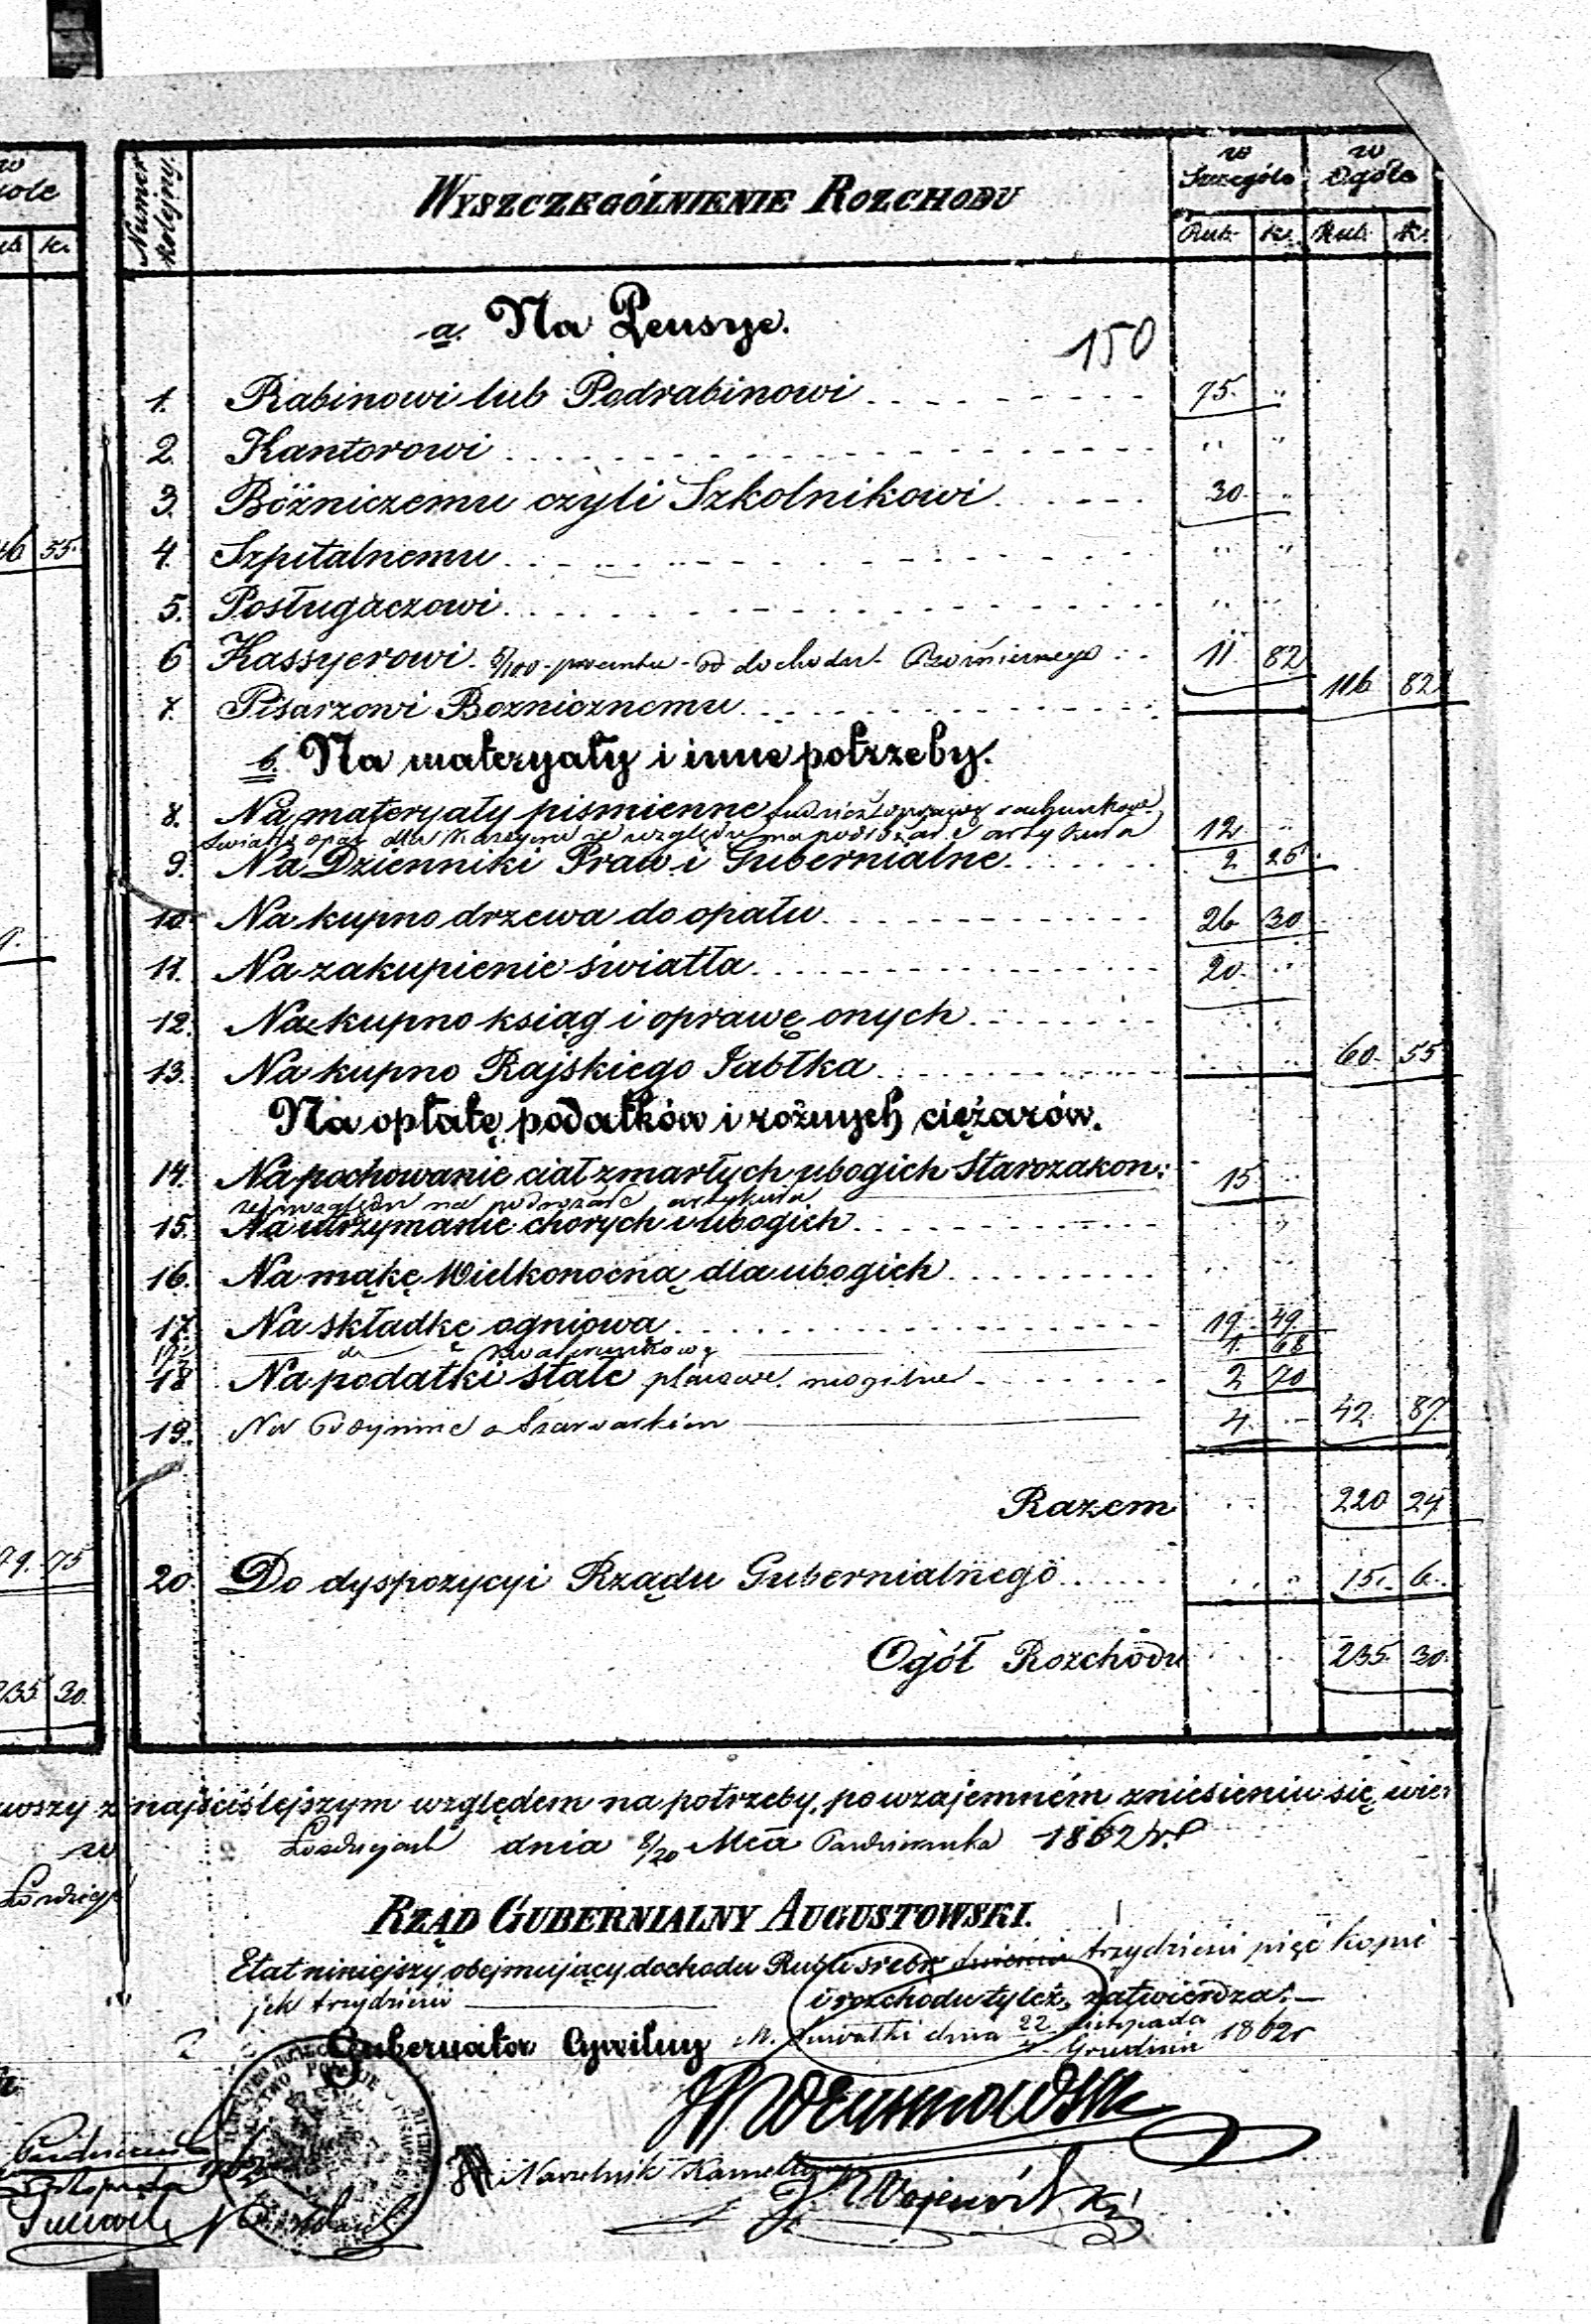 Numer kolejny.
WYSZCZEGÓLNIENIE ROZCHODU
w Szczególe
w Ogóle
Rub. k. Rub. k.
a. Na Pensye.
150
1. Rabinowi lub Podrabinowi 75. "
2. Kantorowi " "
3. Bóżniczemu czyli Szkolnikowi 30. "
46 55.
4. Szpitalnemu " "
5. Posługaczowi " "
6 Kassyerowi 5/100 procentu od dochodu 11. 82
116 82
7. Pisarzowi Boznicznemu
b. Na materyały i inne potrzeby.
8. Na materyały piśmienne
światło opał dla ze względu na podrożałe artykuła 12. "
9. Na Dzienniki Praw i Gubernialne 2 25.
10. Na kupno drzewa do opału 26 30
11. Na zakupienie światła 20. "
12. Na kupno ksiąg i oprawę onych
13. Na kupno Rajskiego Jabłka 60. 55
Na opłatę podatków i rożnych ciężarów.
14. Na pochowanie ciał zmarłych ubogich Starozakon: 15
ze względu na podrożałe artykuła
15. Na utrzymanie chorych i ubogich
16. Na mąkę Wielkonocną dla ubogich
17. Na składkę ogniową 19. 49.
kwaterunkową 1. 68
18 Na podatki stałe placowe 2 70
19. Na Podymne a Szarwarkiem 4. 42. 87.
Razem 220 24
79. 75
20. Do dyspozycyi Rządu Gubernialnego 15. 6.
Ogół Rozchodu 235. 30.
235 30.
wszy z najściślejszym względem na potrzeby, po wzajemném zniesieniu się
w Łozdziejach dnia 8/20 Mca Października 1862 r.
RZĄD GUBERNIALNY AUGUSTOWSKI.
Etat niniejszy, obejmujący dochodu Rubli srebr. trzydzieści pięć kopie
jek trzydzieści i rozchodu tyleż, zatwierdza.
Gubernator Cywilny
M. Suwałki dnia 22 Listopada
Grudnia 1862 r
Naczelnik Kancellaryi